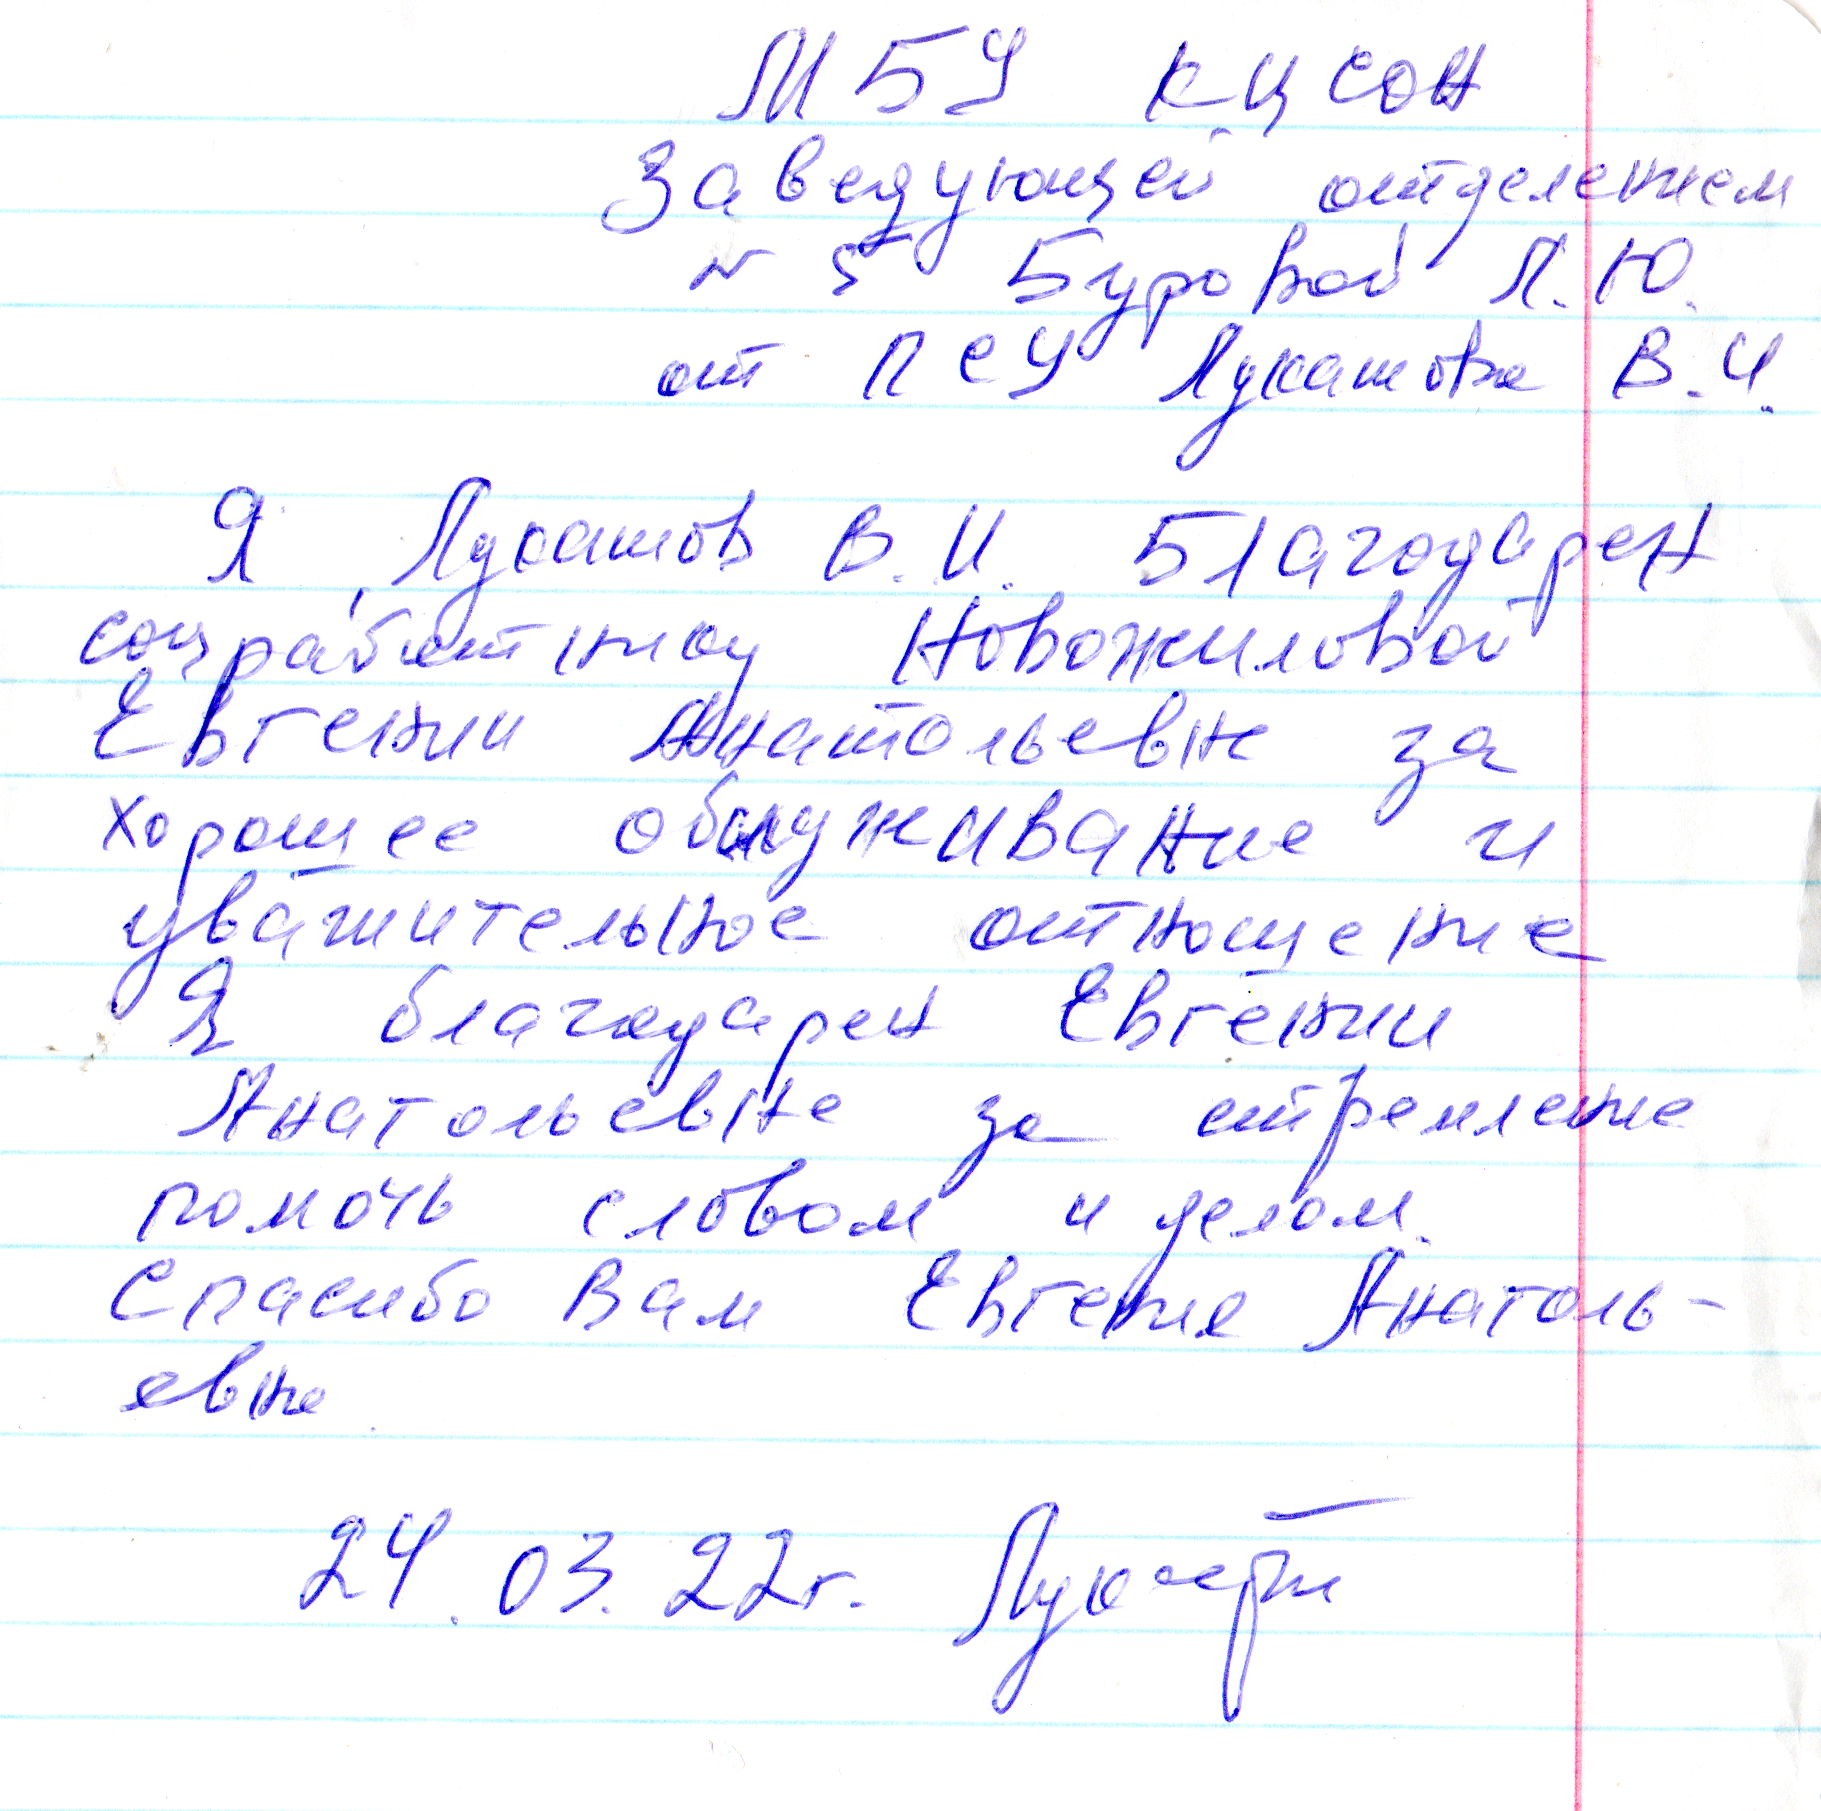 МБУ КЦСОН
Заведующей отделением
№ 5 Буровой Л.Ю.
от ПСУ Лукашова В.И.
Я Лукашов В.И. Благодарен
соцработнику Новожиловой
Евгении Анатольевне за
хорошее обслуживание и
уважительное отношение
Я благодарен Евгении
Анатольевне за стремление
помочь словом и делом.
Спасибо Вам Евгение Анатоль-
евне
24.03.22г.